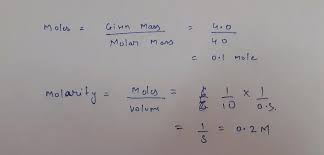 Moles = Given Mass / Molar Mass = 4.0 / 40
= 0.1 mole
Molarity = Moles / Volume = 1/10 × 1/0.5
= 1/5 = 0.2 M